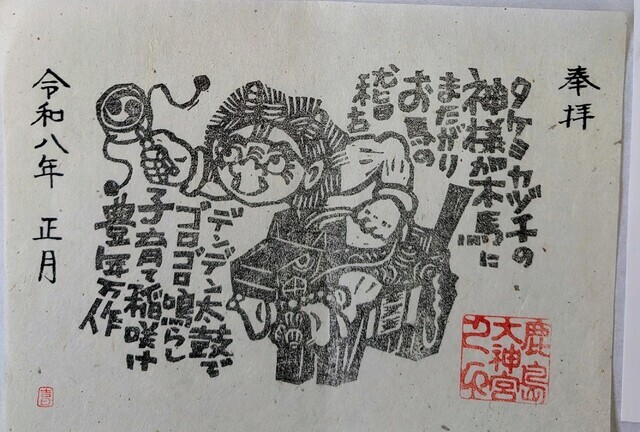 奉拝
タケミカヅチの
神様が木馬に
またがり
お馬の
デンデン太鼓で
ゴロゴロ鳴らし
子育て稲咲け
豊年万作
令和八年 正月
鹿島
大神宮